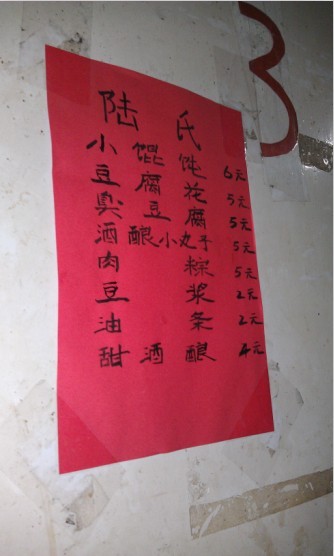 3
陆氏
小馄饨 6元
豆腐花 5元
臭豆腐 5元
酒酿小丸子 5元
肉粽 5元
豆浆 2元
油条 2元
甜酒酿 4元